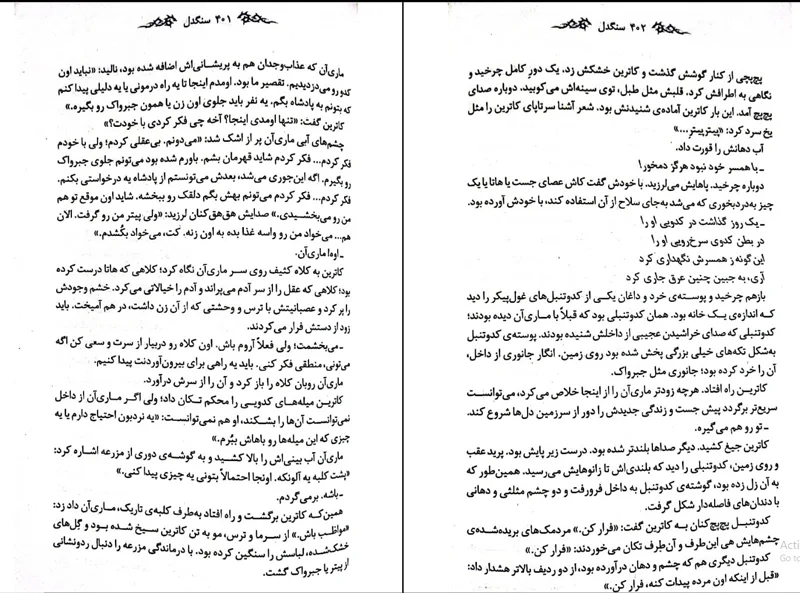 ۴۰۱ سنگدل
ماری‌آن که عذاب‌وجدان هم به پریشانی‌اش اضافه شده بود، نالید: «نباید اون
کدو رو می‌دزدیدیم. تقصیر ما بود. اومدم اینجا تا یه راه درمونی یا یه دلیلی پیدا کنم
که بتونم به پادشاه بگم. یه نفر باید جلوی اون زن یا همون جبرواک رو بگیره.»
کاترین گفت: «تنها اومدی اینجا؟ آخه چی فکر کردی با خودت؟»
چشم‌های آبی ماری‌آن پر از اشک شد: «می‌دونم. بی‌عقلی کردم؛ ولی با خودم
فکر کردم... فکر کردم شاید قهرمان بشم. باورم شده بود می‌تونم جلوی جبرواک
رو بگیرم. اگه این‌جوری می‌شد، بعدش می‌تونستم از پادشاه یه درخواستی بکنم.
فکر کردم... فکر کردم می‌تونم بهش بگم دلقک رو ببخشه. شاید اون موقع تو هم
من رو می‌بخشیدی.» صدایش هق‌هق‌کنان لرزید: «ولی پیتر من رو گرفت. الان
هم... می‌خواد من رو واسه غذا بده به اون زنه. کَت، می‌خواد بکُشدم.»
ـ اوه! ماری‌آن.
کاترین به کلاه کثیف روی سر ماری‌آن نگاه کرد؛ کلاهی که هاتا درست کرده
بود؛ کلاهی که عقل را از سر آدم می‌پراند و آدم را خیالاتی می‌کرد. خشم وجودش
را پر کرد و عصبانیتش با ترس و وحشتی که از آن زن داشت، در هم آمیخت. باید
زود از دستش فرار می‌کردند.
ـ می‌بخشمت؛ ولی فعلاً آروم باش. اون کلاه رو دربیار از سرت و سعی کن اگه
می‌تونی، منطقی فکر کنی. باید یه راهی برای بیرون‌آوردنت پیدا کنیم.
ماری‌آن روبان کلاه را باز کرد و آن را از سرش درآورد.
کاترین میله‌های کدویی را محکم تکان داد؛ ولی اگر ماری‌آن از داخل
نمی‌توانست آن‌ها را بشکند، او هم نمی‌توانست: «یه نردبون احتیاج دارم یا یه
چیزی که این میله‌ها رو باهاش ببُرم.»
ماری‌آن آب بینی‌اش را بالا کشید و به گوشه‌ی دوری از مزرعه اشاره کرد:
«پشت کلبه یه آلونکه. اونجا احتمالاً بتونی یه چیزی پیدا کنی.»
ـ باشه. برمی‌گردم.
همین‌که کاترین برگشت و راه افتاد به‌طرف کلبه‌ی تاریک، ماری‌آن داد زد:
«مواظب باش.» از سرما و ترس، مو به تن کاترین سیخ شده بود و گِل‌های
خشک‌شده، لباسش را سنگین کرده بود. با درماندگی مزرعه را دنبال ردونشانی
از پیتر یا جبرواک گشت.
۴۰۲ سنگدل
پچ‌پچی از کنار گوشش گذشت و کاترین خشکش زد. یک دور کامل چرخید و
نگاهی به اطرافش کرد. قلبش مثل طبل، توی سینه‌اش می‌کوبید. دوباره صدای
پچ‌پچ آمد. این بار کاترین آماده‌ی شنیدنش بود. شعر آشنا سرتاپای کاترین را مثل
یخ سرد کرد: «پیتر پیتر...»
آب دهانش را قورت داد.
ـ با همسر خود نبود هرگز دمخور!
دوباره چرخید. پاهایش می‌لرزید. با خودش گفت کاش عصای جست یا هاتا یا یک
چیز به‌دردبخوری که می‌شد به‌جای سلاح از آن استفاده کند، با خودش آورده بود.
ـ یک روز گذاشت در کدویی او را!
در بطن کدوی سرخ‌رویی او را!
این گونه ز همسرش نگهداری کرد
آری، به جبین چنین عرق جاری کرد
بازهم چرخید و پوسته‌ی خرد و داغان یکی از کدوتنبل‌های غول‌پیکر را دید
که اندازه‌ی یک خانه بود. همان کدوتنبلی بود که قبلاً با ماری‌آن دیده بودند؛
کدوتنبلی که صدای خراشیدن عجیبی از داخلش شنیده بودند. پوسته‌ی کدوتنبل
به‌شکل تکه‌های خیلی بزرگی پخش شده بود روی زمین. انگار جانوری از داخل،
آن را خرد کرده بود؛ جانوری مثل جبرواک.
کاترین راه افتاد. هرچه زودتر ماری‌آن را از اینجا خلاص می‌کرد، می‌توانست
سریع‌تر برگردد پیش جست و زندگی جدیدش را دور از سرزمین دل‌ها شروع کند.
ـ تو رو هم می‌گیره.
کاترین جیغ کشید. دیگر صداها بلندتر شده بود. درست زیر پایش بود. پرید عقب
و روی زمین، کدوتنبلی را دید که بلندی‌اش تا زانوهایش می‌رسید. همین‌طور که
به آن زل زده بود، گوشته‌ی کدوتنبل به داخل فرورفت و دو چشم مثلثی و دهانی
با دندان‌های فاصله‌دار شکل گرفت.
کدوتنبل پچ‌پچ‌کنان به کاترین گفت: «فرار کن.» مردمک‌های بریده‌شده‌ی
چشم‌هایش هی این‌طرف و آن‌طرف تکان می‌خوردند: «فرار کن.»
کدوتنبل دیگری هم که چشم و دهان درآورده بود، از دو ردیف بالاتر هشدار داد:
«قبل از اینکه اون مرده پیدات کنه، فرار کن.»
Acti
Go to